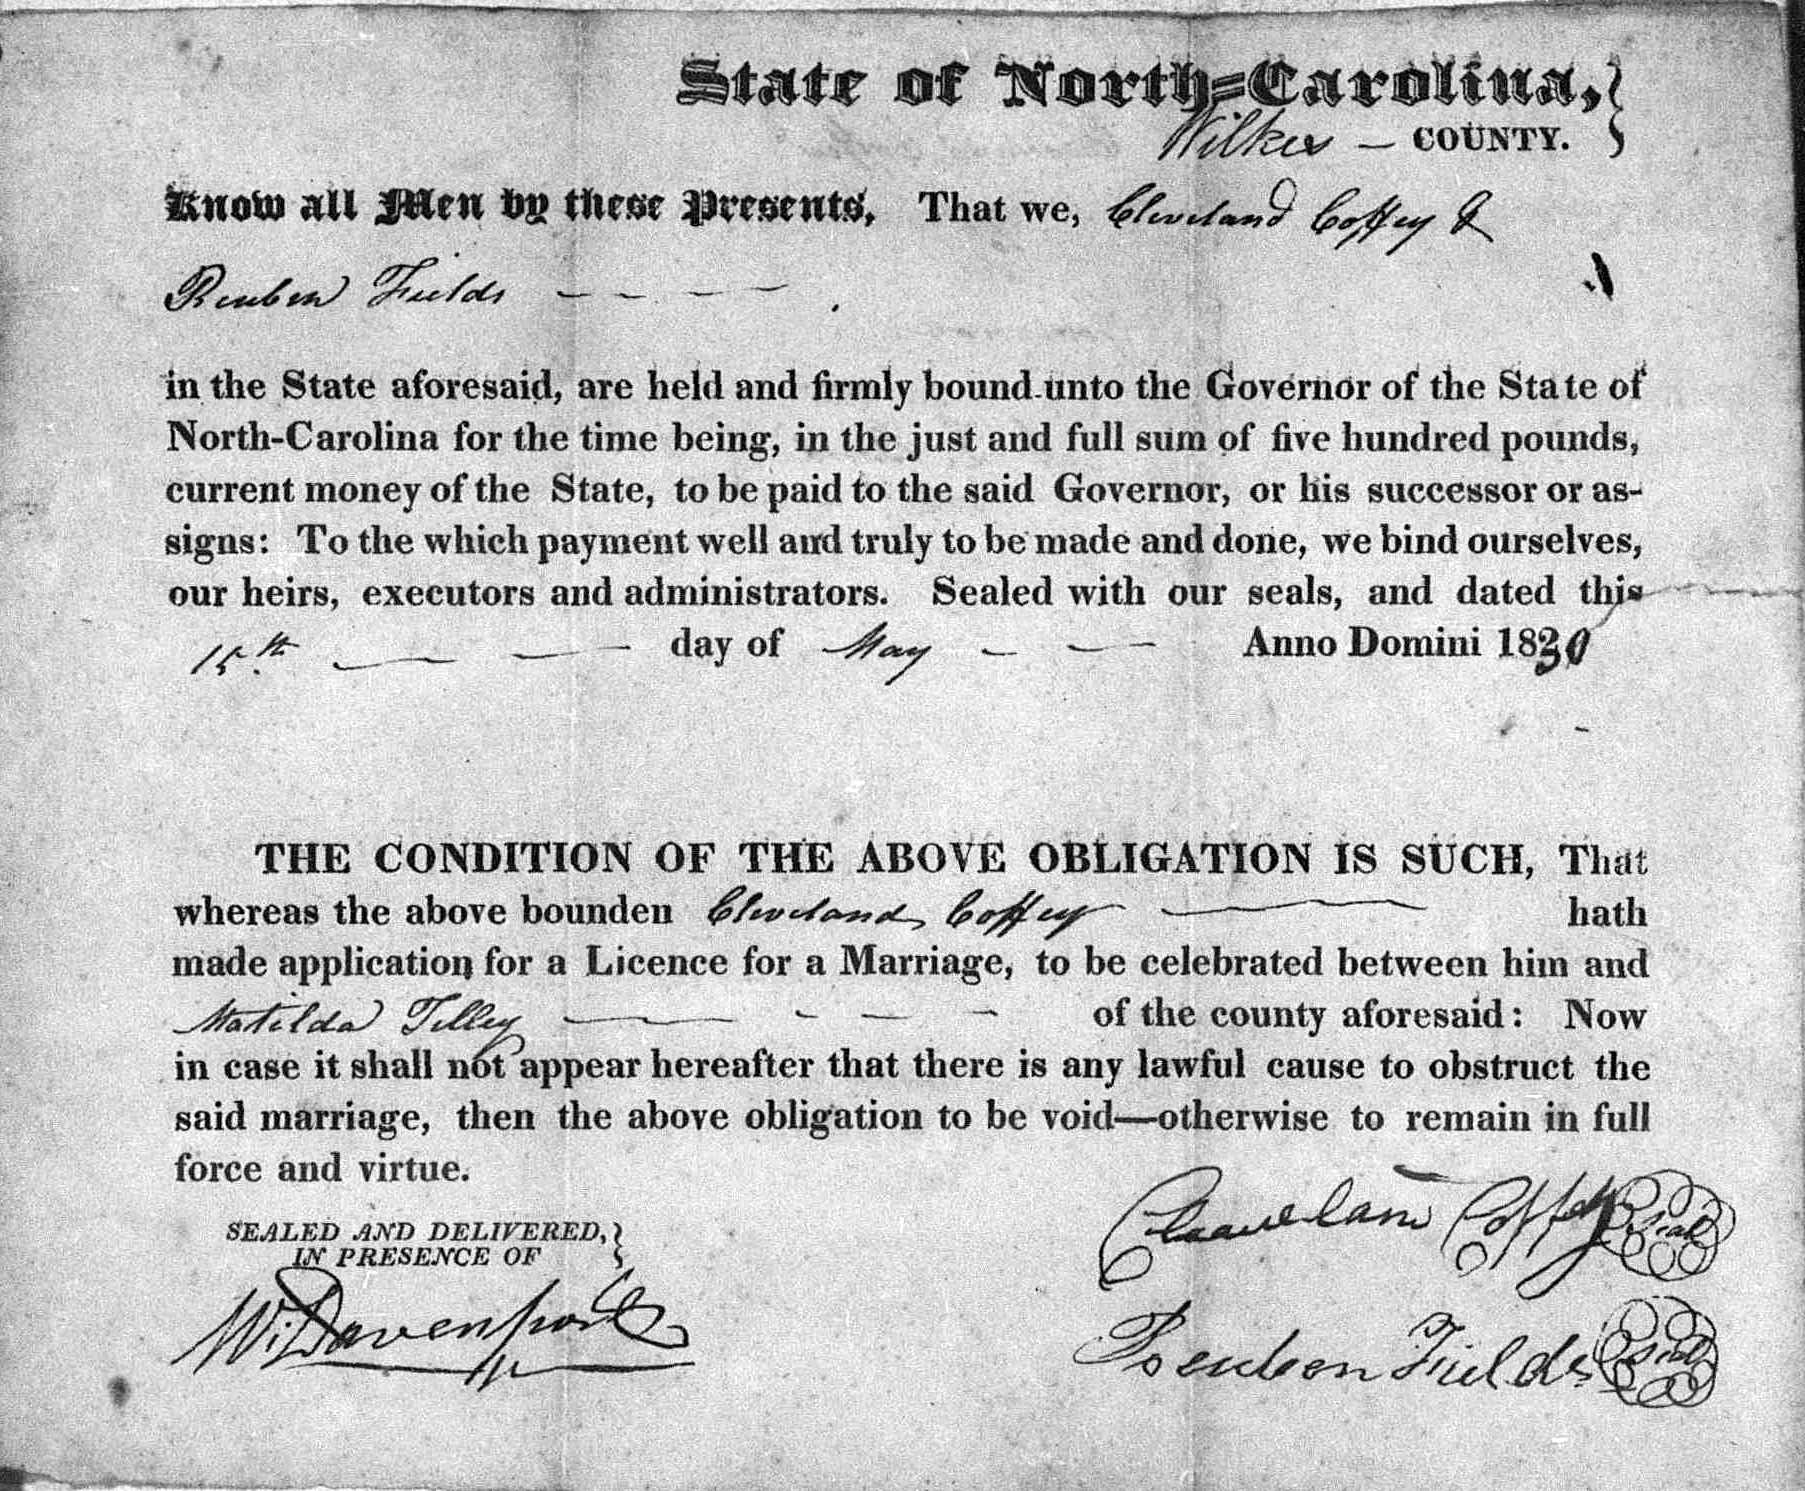 State of North-Carolina,
Wilkes — COUNTY.
Know all Men by these Presents, That we, Cleveland Coffey &
Reuben Fields — — — —
in the State aforesaid, are held and firmly bound unto the Governor of the State of
North-Carolina for the time being, in the just and full sum of five hundred pounds,
current money of the State, to be paid to the said Governor, or his successor or as-
signs: To the which payment well and truly to be made and done, we bind ourselves,
our heirs, executors and administrators. Sealed with our seals, and dated this
15th. — — — day of May — — Anno Domini 1830
THE CONDITION OF THE ABOVE OBLIGATION IS SUCH, That
whereas the above bounden Cleveland Coffey — hath
made application for a Licence for a Marriage, to be celebrated between him and
Matilda Tilley — — — — of the county aforesaid: Now
in case it shall not appear hereafter that there is any lawful cause to obstruct the
said marriage, then the above obligation to be void—otherwise to remain in full
force and virtue.
SEALED AND DELIVERED,
IN PRESENCE OF
W. Davenport
Cleaveland Coffey Seal
Reuben Fields Seal